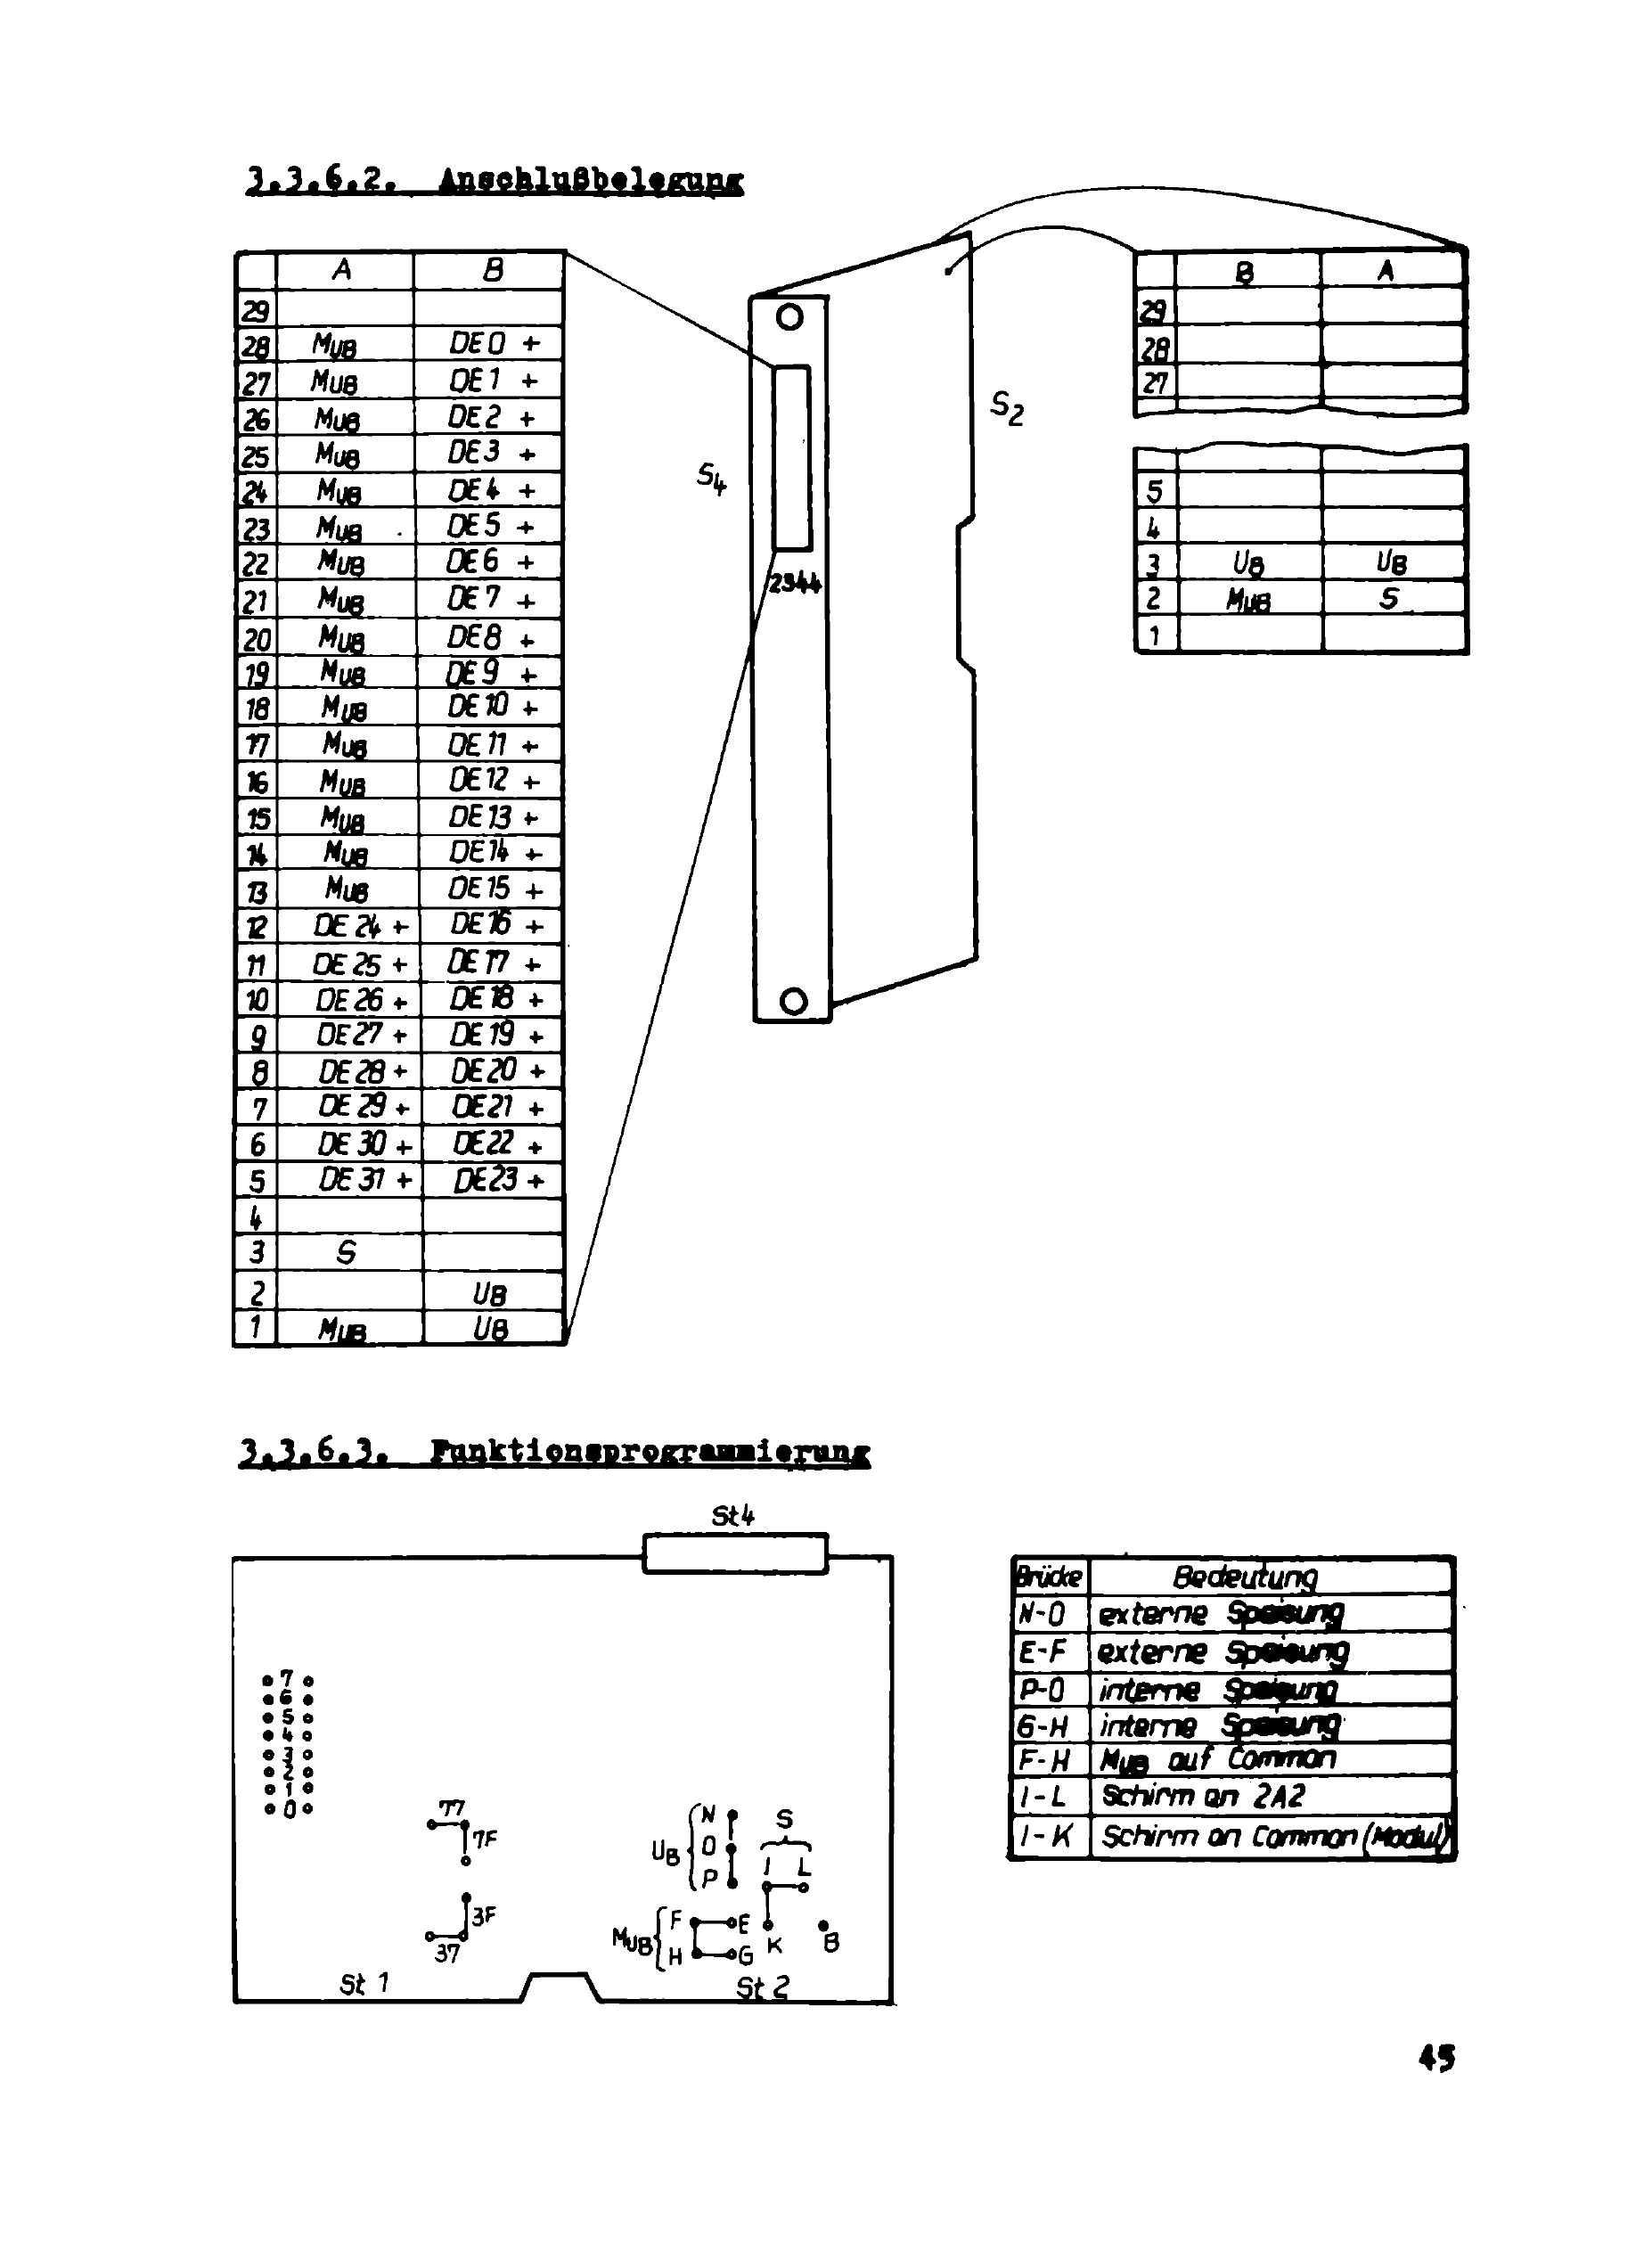 3.3.6.2. Anschlußbelegung
A B
29
28 MUB DE 0 +
27 MUB DE 1 +
26 MUB DE 2 +
25 MUB DE 3 +
24 MUB DE 4 +
23 MUB DE 5 +
22 MUB DE 6 +
21 MUB DE 7 +
20 MUB DE 8 +
19 MUB DE 9 +
18 MUB DE 10 +
17 MUB DE 11 +
16 MUB DE 12 +
15 MUB DE 13 +
14 MUB DE 14 +
13 MUB DE 15 +
12 DE 24 + DE 16 +
11 DE 25 + DE 17 +
10 DE 26 + DE 18 +
9 DE 27 + DE 19 +
8 DE 28 + DE 20 +
7 DE 29 + DE 21 +
6 DE 30 + DE 22 +
5 DE 31 + DE 23 +
4
3 S
2 UB
1 MUB UB
S4
2344
S2
B A
29
28
27
5
4
3 UB UB
2 MUB S
1
3.3.6.3. Funktionsprogrammierung
St4
7
6
5
4
3
2
1
0
77
7F
3F
37
UB N
O
P
S
I L
MUB F E
H G
K
B
St 1
St 2
Brücke Bedeutung
N-O externe Speisung
E-F externe Speisung
P-O interne Speisung
G-H interne Speisung
F-H MUB auf Common
I-L Schirm an 2A2
I-K Schirm an Common (Modul)
45